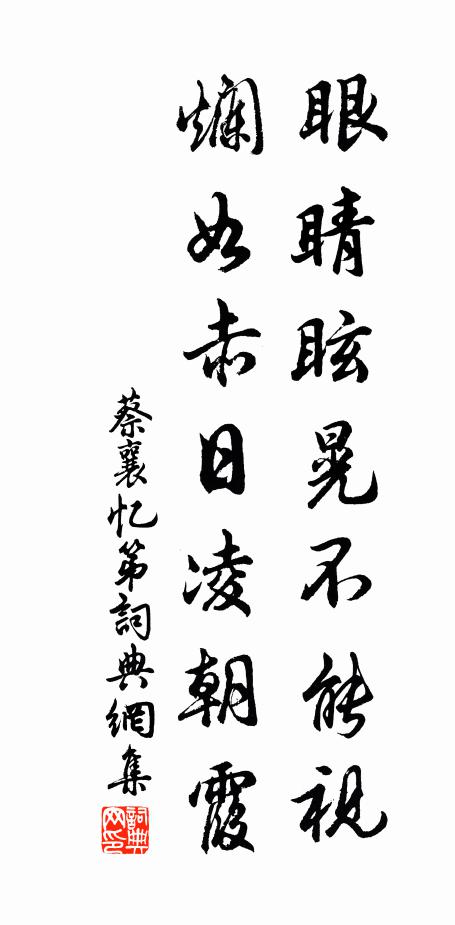 眼睛眩晃不能視
爛如赤日凌朝霞
蔡襄忆弟詞典網集
詞典網印